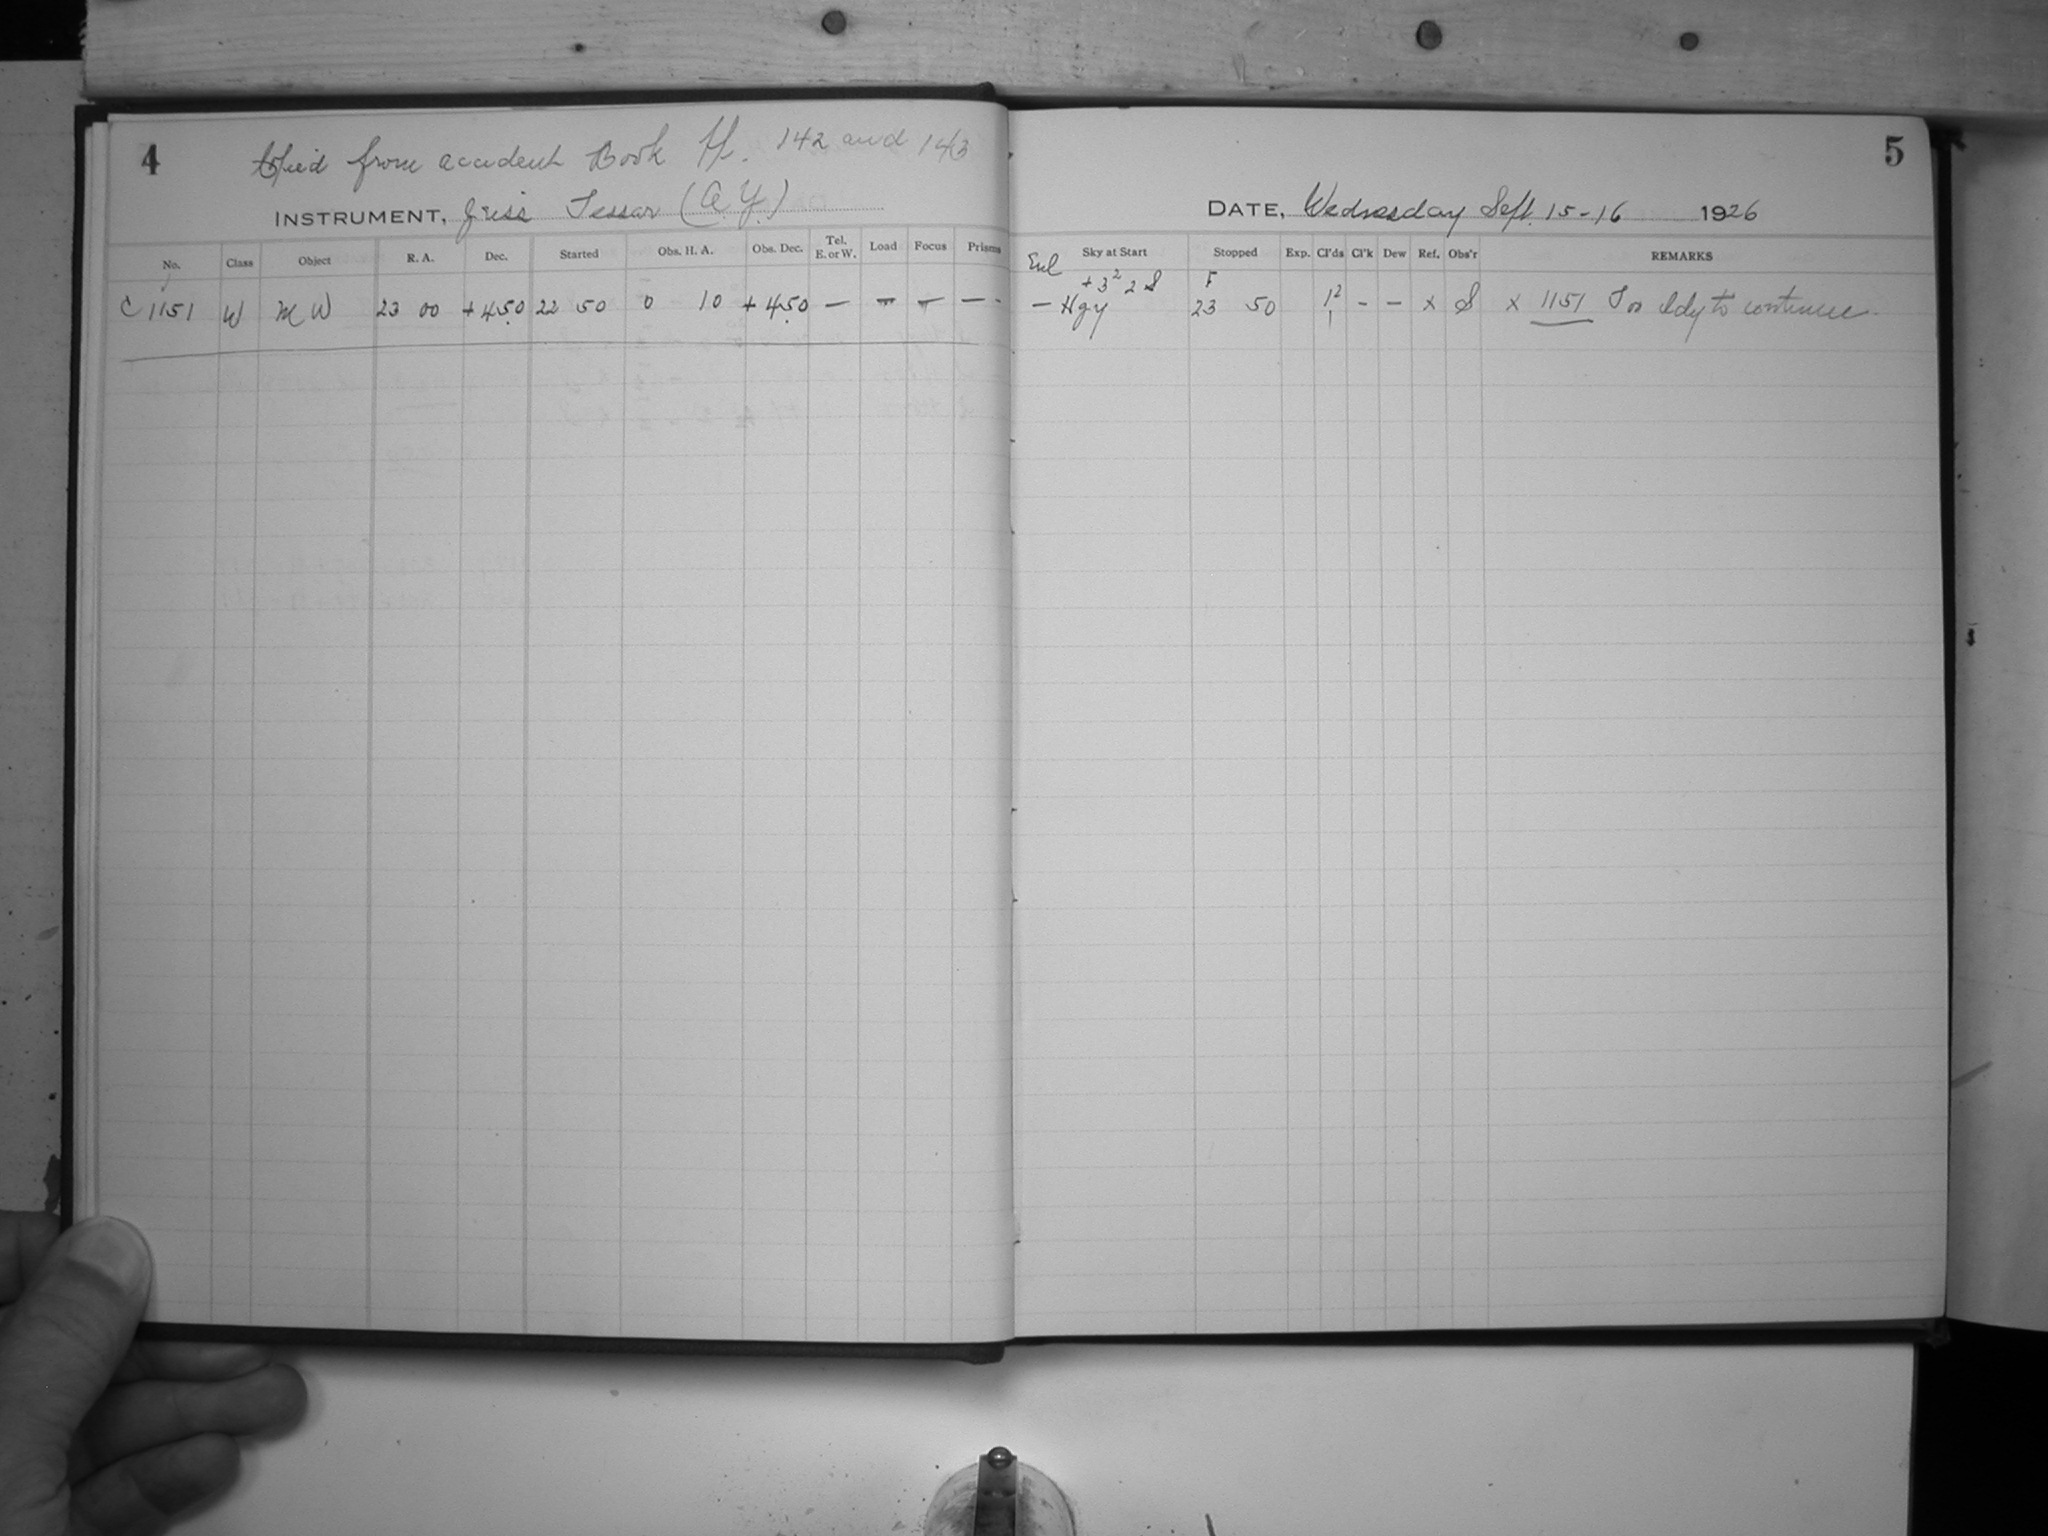 4
Copied from accident Book pp. 142 and 143
INSTRUMENT, Zeiss Tessar (AY)
No. Class Object R. A. Dec. Started Obs. H. A. Obs. Dec. Tel. E. or W. Load Focus Prisms
C 1151 W MW 23 00 +45.0 22 50 0 10 +45.0 — — — — -
5
DATE, Wednesday Sept. 15-16 1926
Sky at Start Stopped Exp. Cl'ds Cl'k Dew Ref. Obs'r REMARKS
+3² 2 S F
— Hgy 23 50 1² - - x S x 1151 to continue